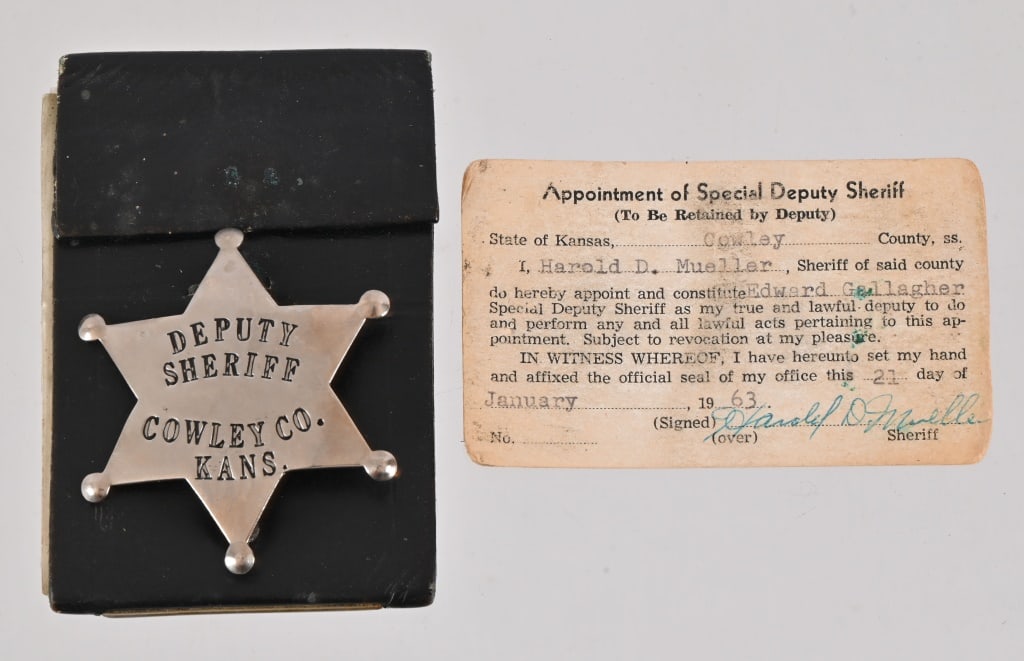 DEPUTY
SHERIFF
COWLEY CO.
KANS.
Appointment of Special Deputy Sheriff
(To Be Retained by Deputy)
State of Kansas, Cowley County, ss.
I, Harold D. Mueller, Sheriff of said county
do hereby appoint and constitute Edward Gallagher
Special Deputy Sheriff as my true and lawful deputy to do
and perform any and all lawful acts pertaining to this ap-
pointment. Subject to revocation at my pleasure.
IN WITNESS WHEREOF, I have hereunto set my hand
and affixed the official seal of my office this 21 day of
January, 1963.
(Signed) Harold D. Mueller
No. (over) Sheriff